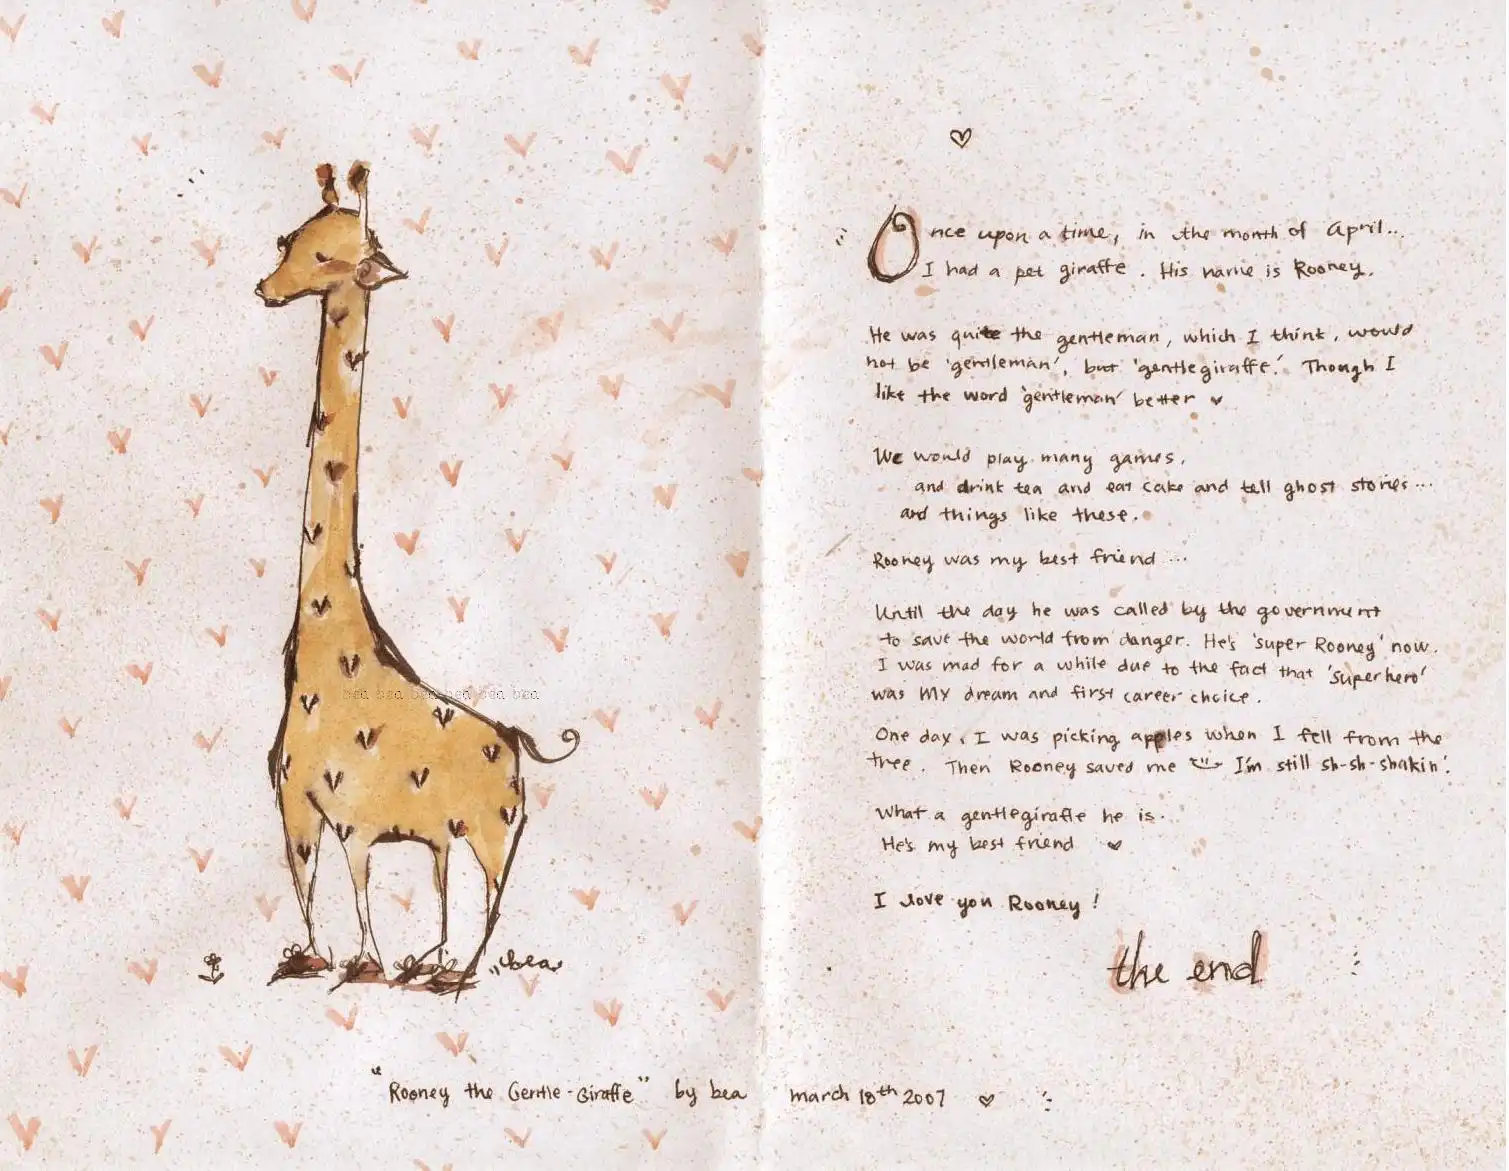 Once upon a time, in the month of April...
I had a pet giraffe. His name is Rooney.
He was quite the gentleman, which I think, would
not be 'gentleman', but 'gentlegiraffe.' Though I
like the word 'gentleman' better
We would play many games,
and drink tea and eat cake and tell ghost stories...
and things like these.
Rooney was my best friend...
Until the day he was called by the government
to save the world from danger. He's 'super Rooney' now.
I was mad for a while due to the fact that 'superhero'
was MY dream and first career choice.
One day, I was picking apples when I fell from the
tree. Then Rooney saved me I'm still sh-sh-shakin'.
What a gentlegiraffe he is.
He's my best friend
I love you Rooney!
the end
bea bea bea bea bea bea
bea
"Rooney the Gentle-Giraffe" by bea march 18th 2007